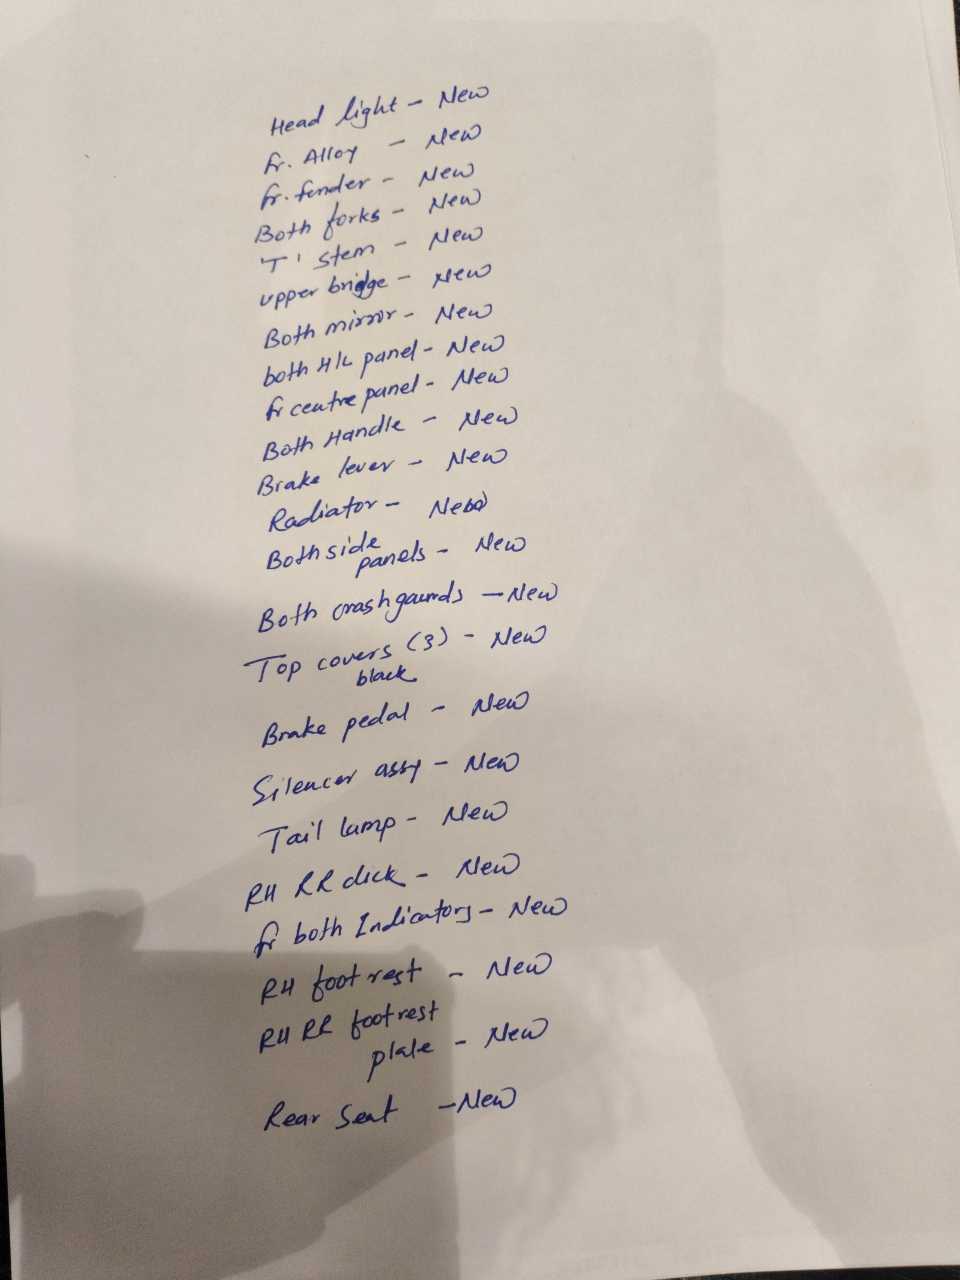 Head light - New
fr. Alloy - New
fr. fender - New
Both forks - New
'T' stem - New
upper bridge - New
Both mirror - New
both H/L panel - New
fr centre panel - New
Both Handle - New
Brake lever - New
Radiator - New
Both side
panels - New
Both crash gaurds - New
Top covers (3) - New
black
Brake pedal - New
Silencer assy - New
Tail lamp - New
RH RR dick - New
fr both Indicators - New
RH foot rest - New
RH RR foot rest
plate - New
Rear Seat - New